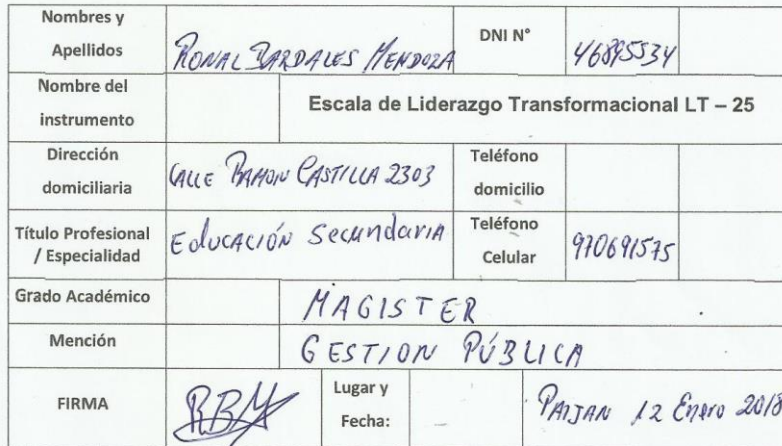 Nombres y
Apellidos
RONAL BARDALES MENDOZA
DNI N°
46895534
Nombre del
instrumento
Escala de Liderazgo Transformacional LT – 25
Dirección
domiciliaria
CALLE RAMON CASTILLA 2303
Teléfono
domicilio
Título Profesional
/ Especialidad
Educación Secundaria
Teléfono
Celular
970691575
Grado Académico
MAGISTER
Mención
GESTION PÚBLICA
FIRMA
RBM
Lugar y
Fecha:
PAIJAN 12 Enero 2018